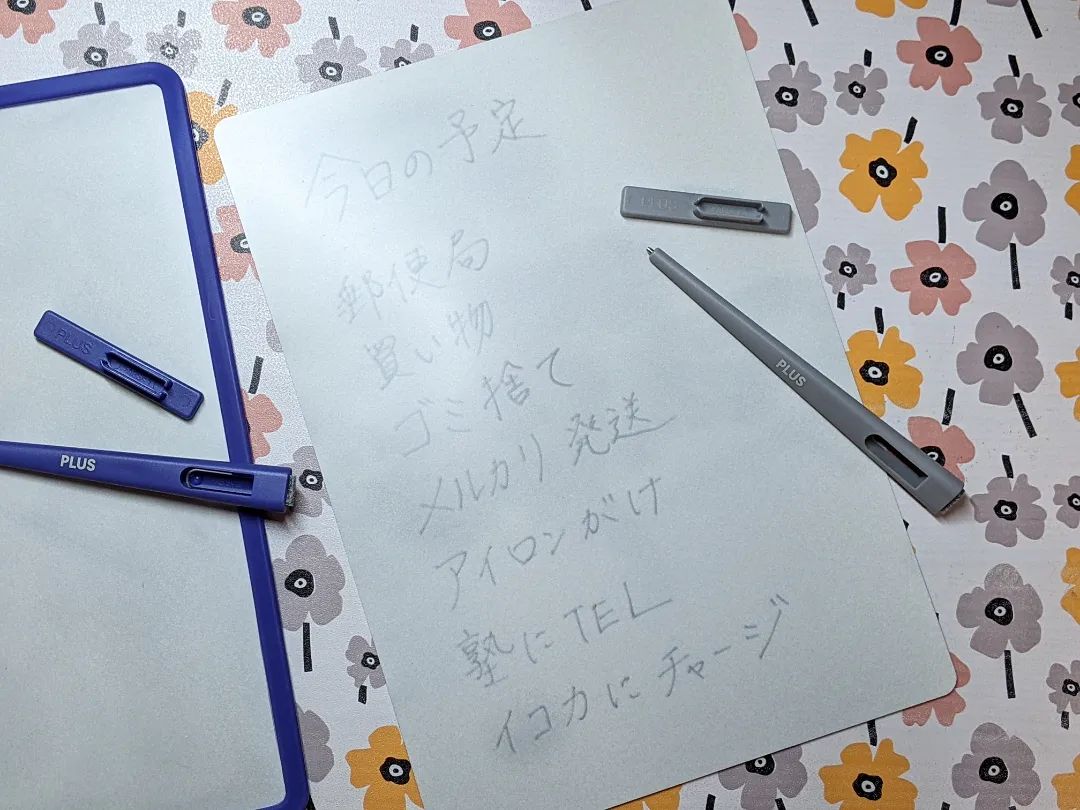 今日の予定
郵便局
買い物
ゴミ捨て
メルカリ発送
アイロンがけ
塾にTEL
イコカにチャージ
PLUS
PLUS
PLUS
PLUS